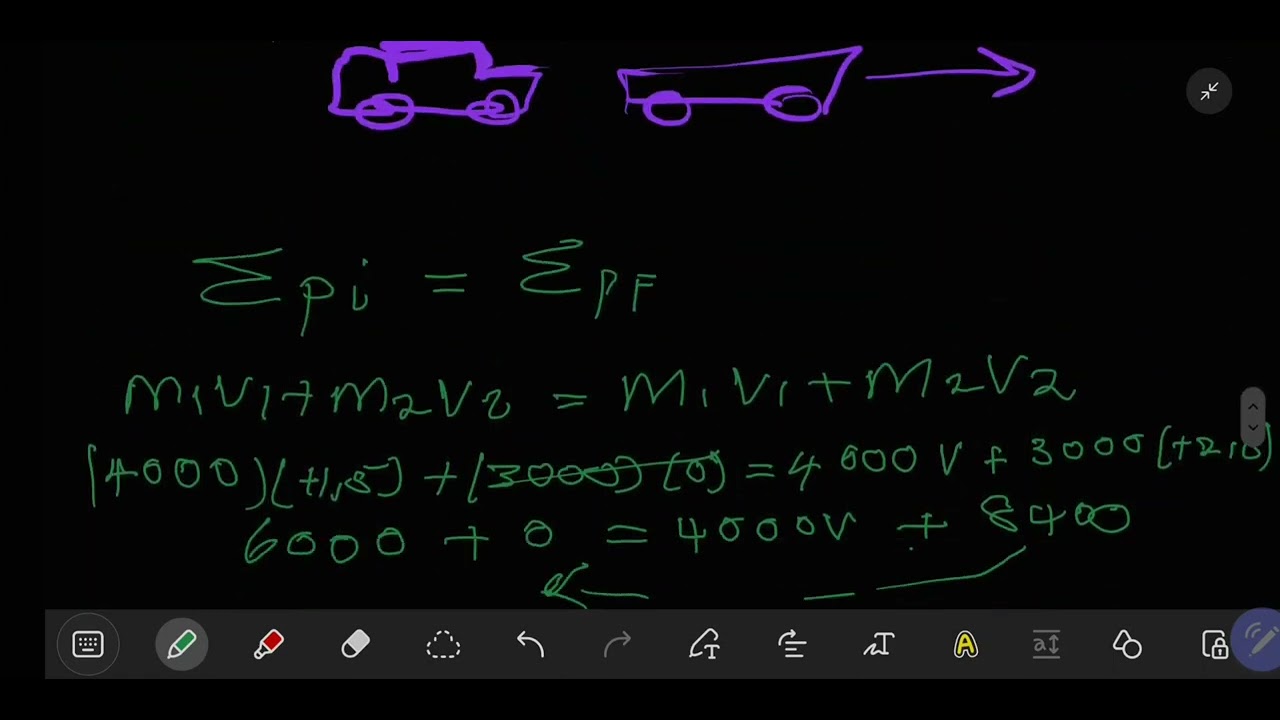 Σpi = ΣpF
m1V1+m2V2 = m1V1+m2V2
(4000)(+1,5)+(3000)(0)=4000V+3000(+2,8)
6000+0=4000V+8400